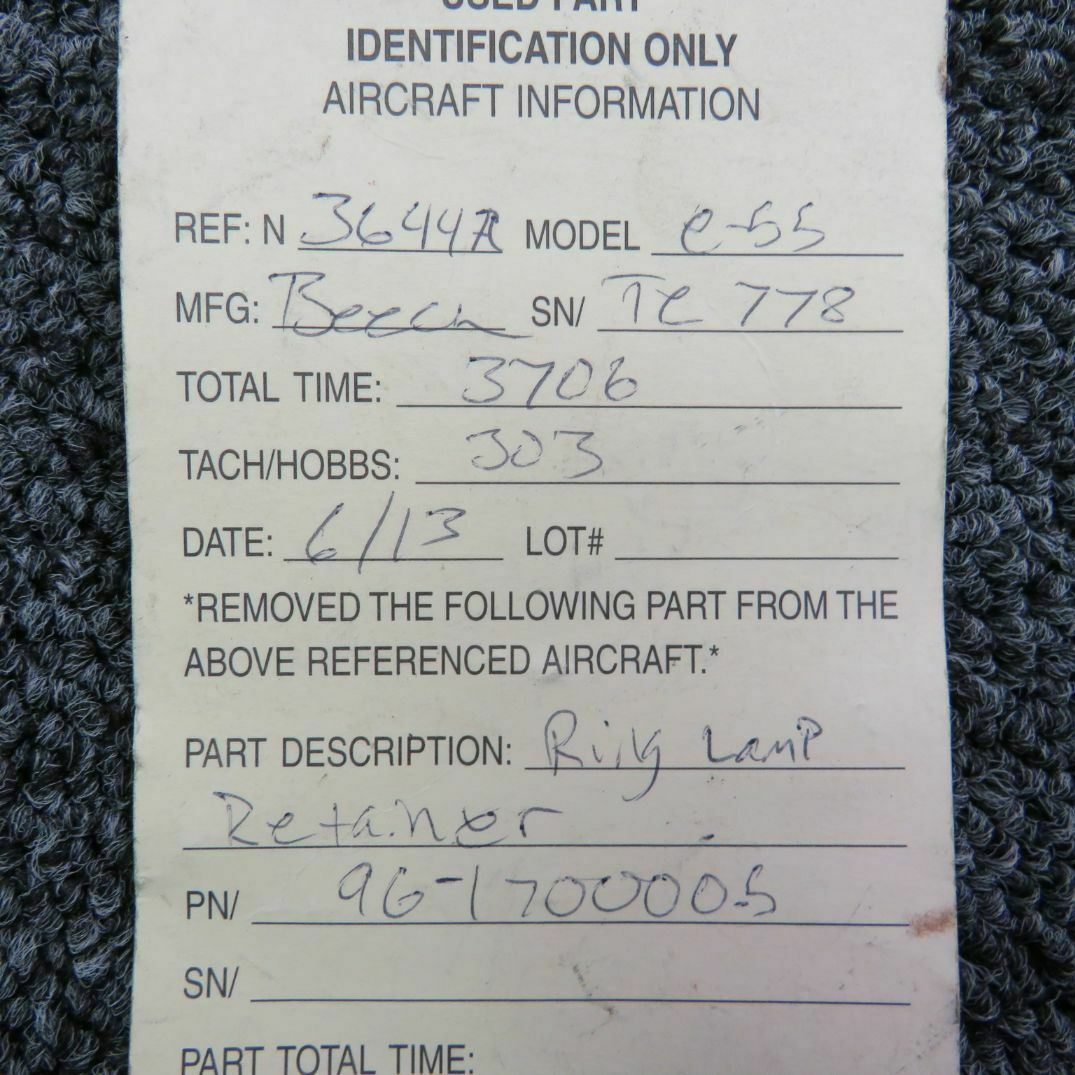 USED PART
IDENTIFICATION ONLY
AIRCRAFT INFORMATION
REF: N 3644A MODEL e-55
MFG: Beech SN/ TE 778
TOTAL TIME: 3706
TACH/HOBBS: 303
DATE: 6/13 LOT#
*REMOVED THE FOLLOWING PART FROM THE
ABOVE REFERENCED AIRCRAFT.*
PART DESCRIPTION: Ring Lamp
Retainer
PN/ 96-1700005
SN/
PART TOTAL TIME: